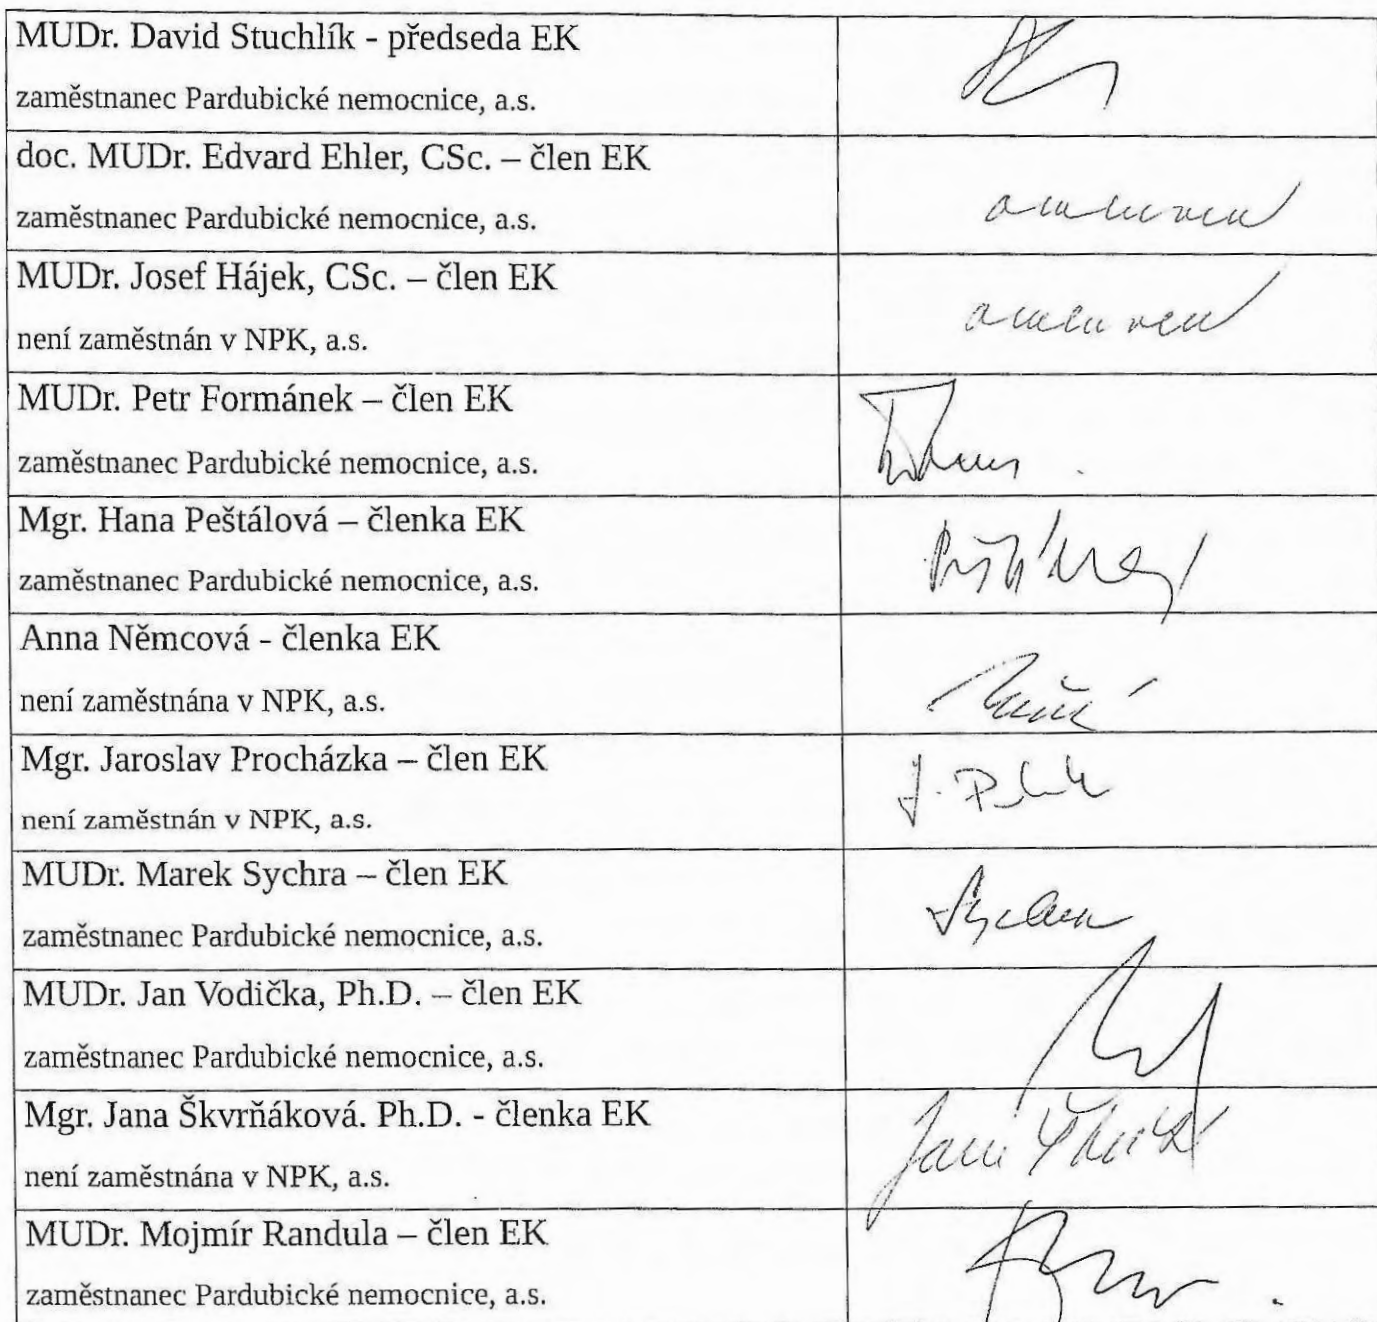 MUDr. David Stuchlík - předseda EK
zaměstnanec Pardubické nemocnice, a.s.
doc. MUDr. Edvard Ehler, CSc. – člen EK
zaměstnanec Pardubické nemocnice, a.s.
omluven
MUDr. Josef Hájek, CSc. – člen EK
omluven
není zaměstnán v NPK, a.s.
MUDr. Petr Formánek – člen EK
zaměstnanec Pardubické nemocnice, a.s.
Mgr. Hana Peštálová – členka EK
zaměstnanec Pardubické nemocnice, a.s.
Anna Němcová - členka EK
není zaměstnána v NPK, a.s.
Mgr. Jaroslav Procházka – člen EK
není zaměstnán v NPK, a.s.
MUDr. Marek Sychra – člen EK
zaměstnanec Pardubické nemocnice, a.s.
MUDr. Jan Vodička, Ph.D. – člen EK
zaměstnanec Pardubické nemocnice, a.s.
Mgr. Jana Škvrňáková. Ph.D. - členka EK
není zaměstnána v NPK, a.s.
MUDr. Mojmír Randula – člen EK
zaměstnanec Pardubické nemocnice, a.s.